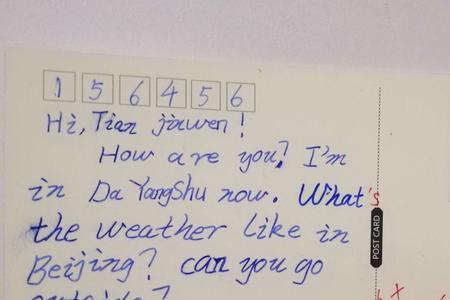 156456
Hi, Tian jinwen!
How are you? I'm
in Da YangShu now. What's
the weather like in
Beijing? can you go
outside?
POST CARD